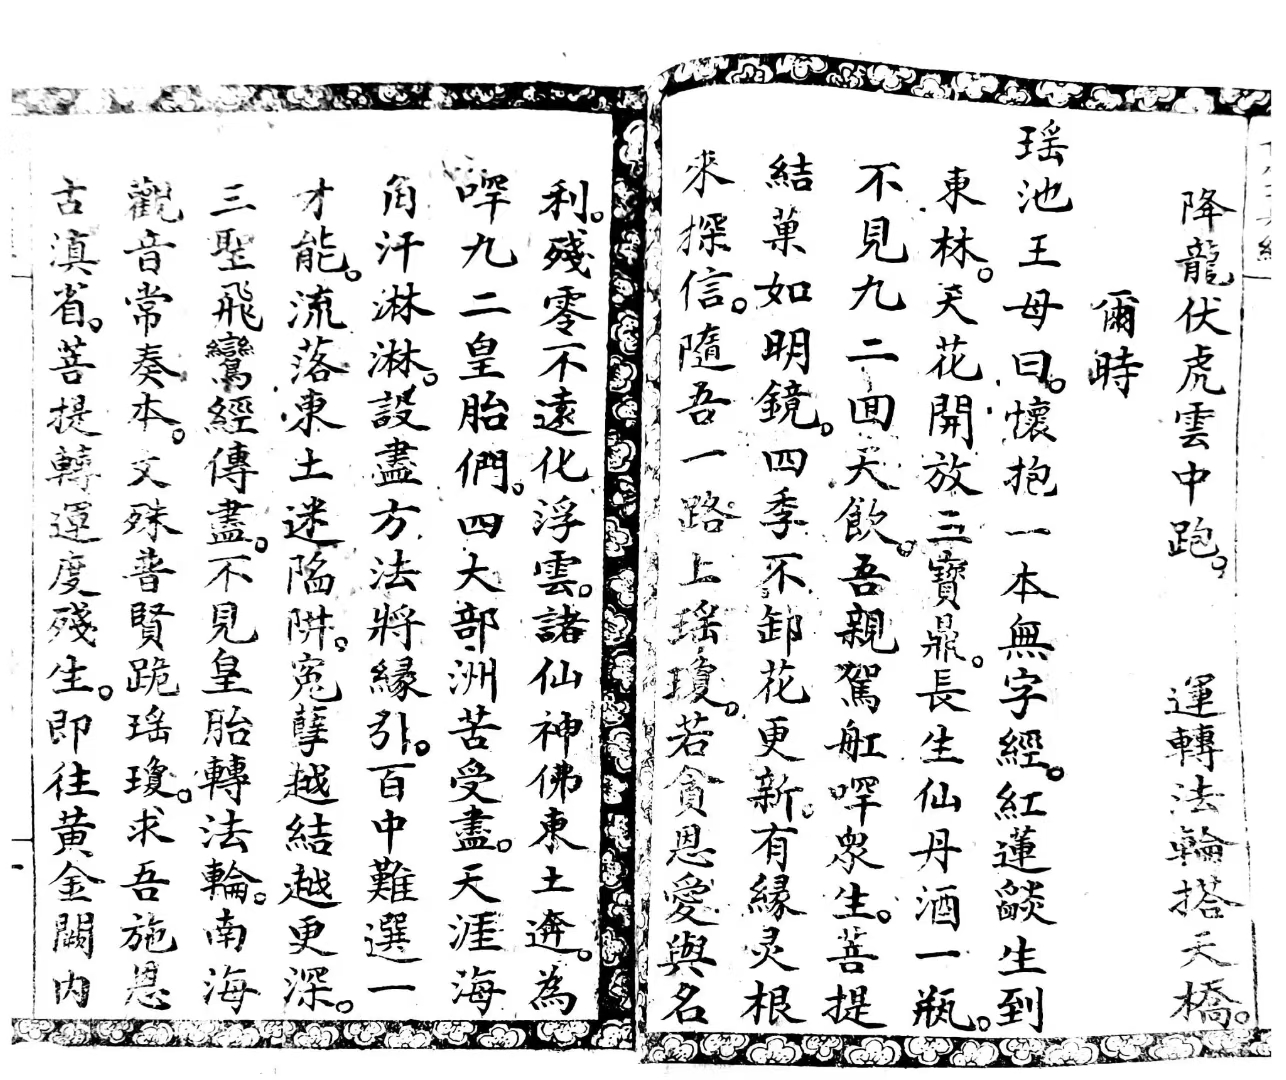 降龍伏虎雲中跑。 運轉法輪搭天橋。
爾時
瑶池王母曰。懷抱一本無字經。紅蓮燄生到
東林。天花開放三寶鼎。長生仙丹酒一瓶。
不見九二囬天飲。吾親駕舡㖔衆生。菩提
結菓如明鏡。四季不卸花更新。有緣灵根
來探信。隨吾一路上瑶瓊。若貪恩愛與名
利。殘零不遠化浮雲。諸仙神佛東土遊。為
㖔九二皇胎們。四大部洲苦受盡。天涯海
角汗淋淋。設盡方法將緣引。百中難選一
才能。流落東土迷陷阱。寃孽越結越更深。
三聖飛鸞經傳盡。不見皇胎轉法輪。南海
觀音常奏本。文殊普賢跪瑶瓊。求吾施恩
古滇省。菩提轉運度殘生。即往黃金闕内